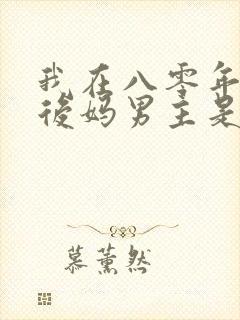 我在八零年
後妈男主是
慕薰然